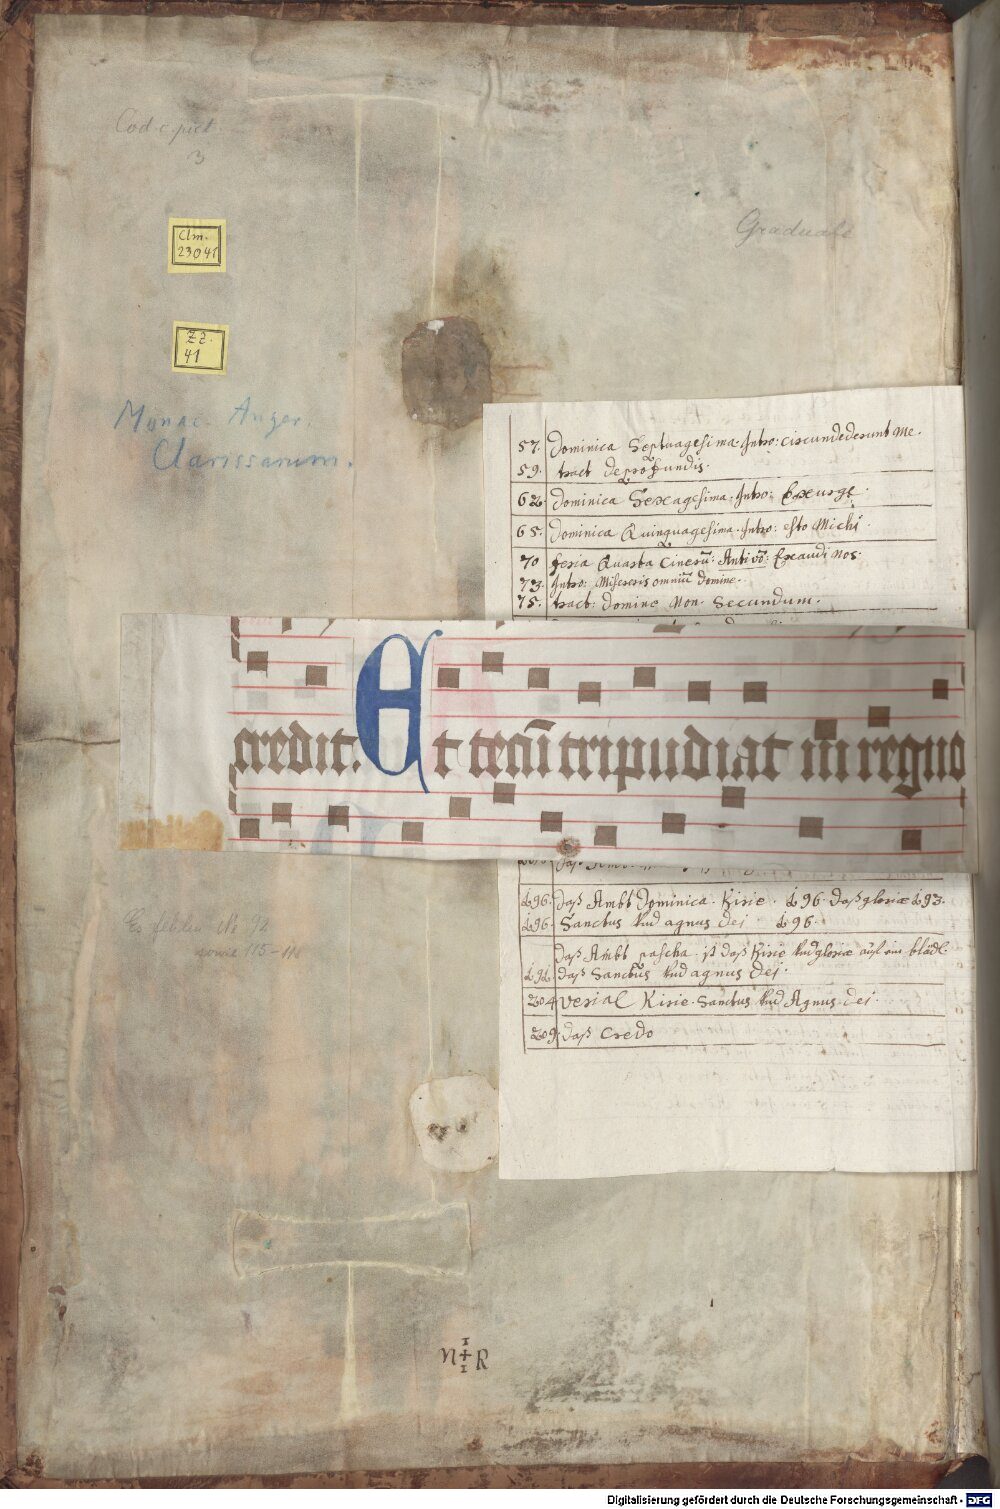 Cod. c. pict.
3
Graduale
Clm.
23041
ZZ.
41
Monac. Anger.
Clarissarum.
57. Dominica Septuagesima. Intro: circumdederunt me.
59. tract de profundis.
62. Dominica Sexagesima. Intro: Exurge.
65. Dominica Quinquagesima. Intro: esto Michi.
70 feria Quarta Cinerū. Exaudi nos.
73. Intro: Misereris omniū Domine.
75. tract: Domine Non. Secundum.
credit. Et tecū tripudiat in regno
196. daß Ambt Dominica. Kirie. 196. daß gloriæ 193.
196. Sanctus und agnus dei 196.
daß Ambt pascha. ist daß Kirie und gloriæ auf ein blädl.
daß Sanctus und agnus Dei.
204 Kirie. Sanctus und Agnus dei.
209. daß Credo
Es fehlen Nr 92
sowie 115-
1
n + R
1
Digitalisierung gefördert durch die Deutsche Forschungsgemeinschaft - DFG